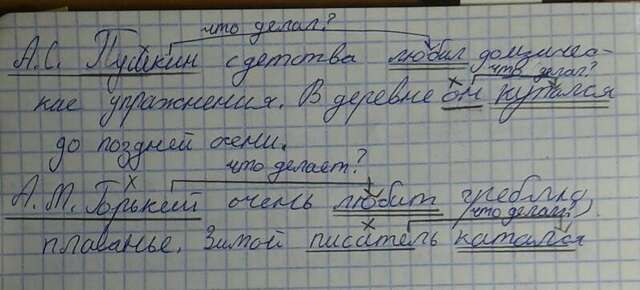 что делал?
А.С. Пушкин с детства любил физичес-
что делал?
кие упражнения. В деревне он купался
до поздней осени.
что делает?
А.М. Горький очень любит греблю,
что делал?
плаванье. Зимой писатель катался